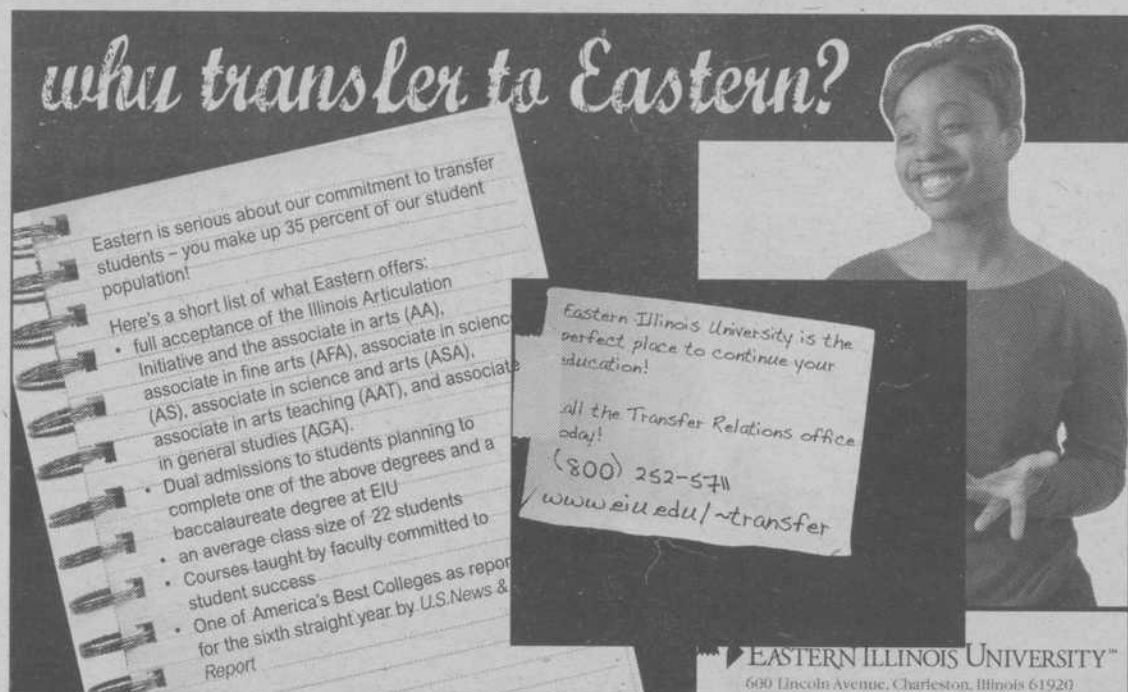 why transfer to Eastern?
Eastern is serious about our commitment to transfer
students – you make up 35 percent of our student
population!
Here's a short list of what Eastern offers:
• full acceptance of the Illinois Articulation
Initiative and the associate in arts (AA),
associate in fine arts (AFA), associate in science
(AS), associate in science and arts (ASA),
associate in arts teaching (AAT), and associate
in general studies (AGA).
• Dual admissions to students planning to
complete one of the above degrees and a
baccalaureate degree at EIU
• an average class size of 22 students
• Courses taught by faculty committed to
student success
• One of America's Best Colleges as repor
for the sixth straight year by U.S.News &
Report
Eastern Illinois University is the
perfect place to continue your
education!
all the Transfer Relations office
oday!
(800) 252-5711
www.eiu.edu/~transfer
EASTERN ILLINOIS UNIVERSITY™
600 Lincoln Avenue, Charleston, Illinois 61920